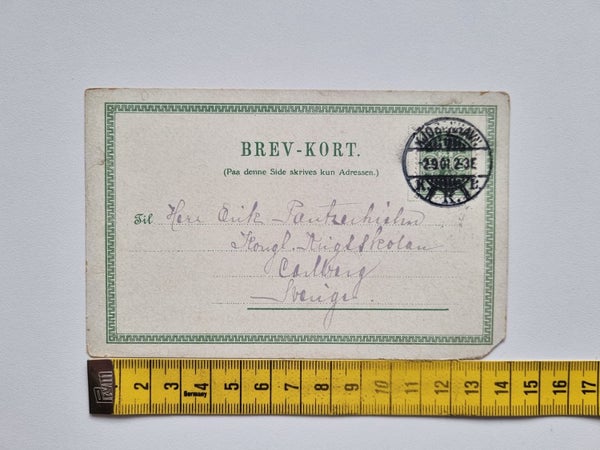 BREV-KORT.
(Paa denne Side skrives kun Adressen.)
KJØBENHAVN
2.9.01. 2-3E
K.
Til Herr Erik Pantzerhielm
Kongl. Krigsskolan
Carlberg
Sverige.
2 3 4 5 6 7 8 9 10 11 12 13 14 15 16 17
Germany